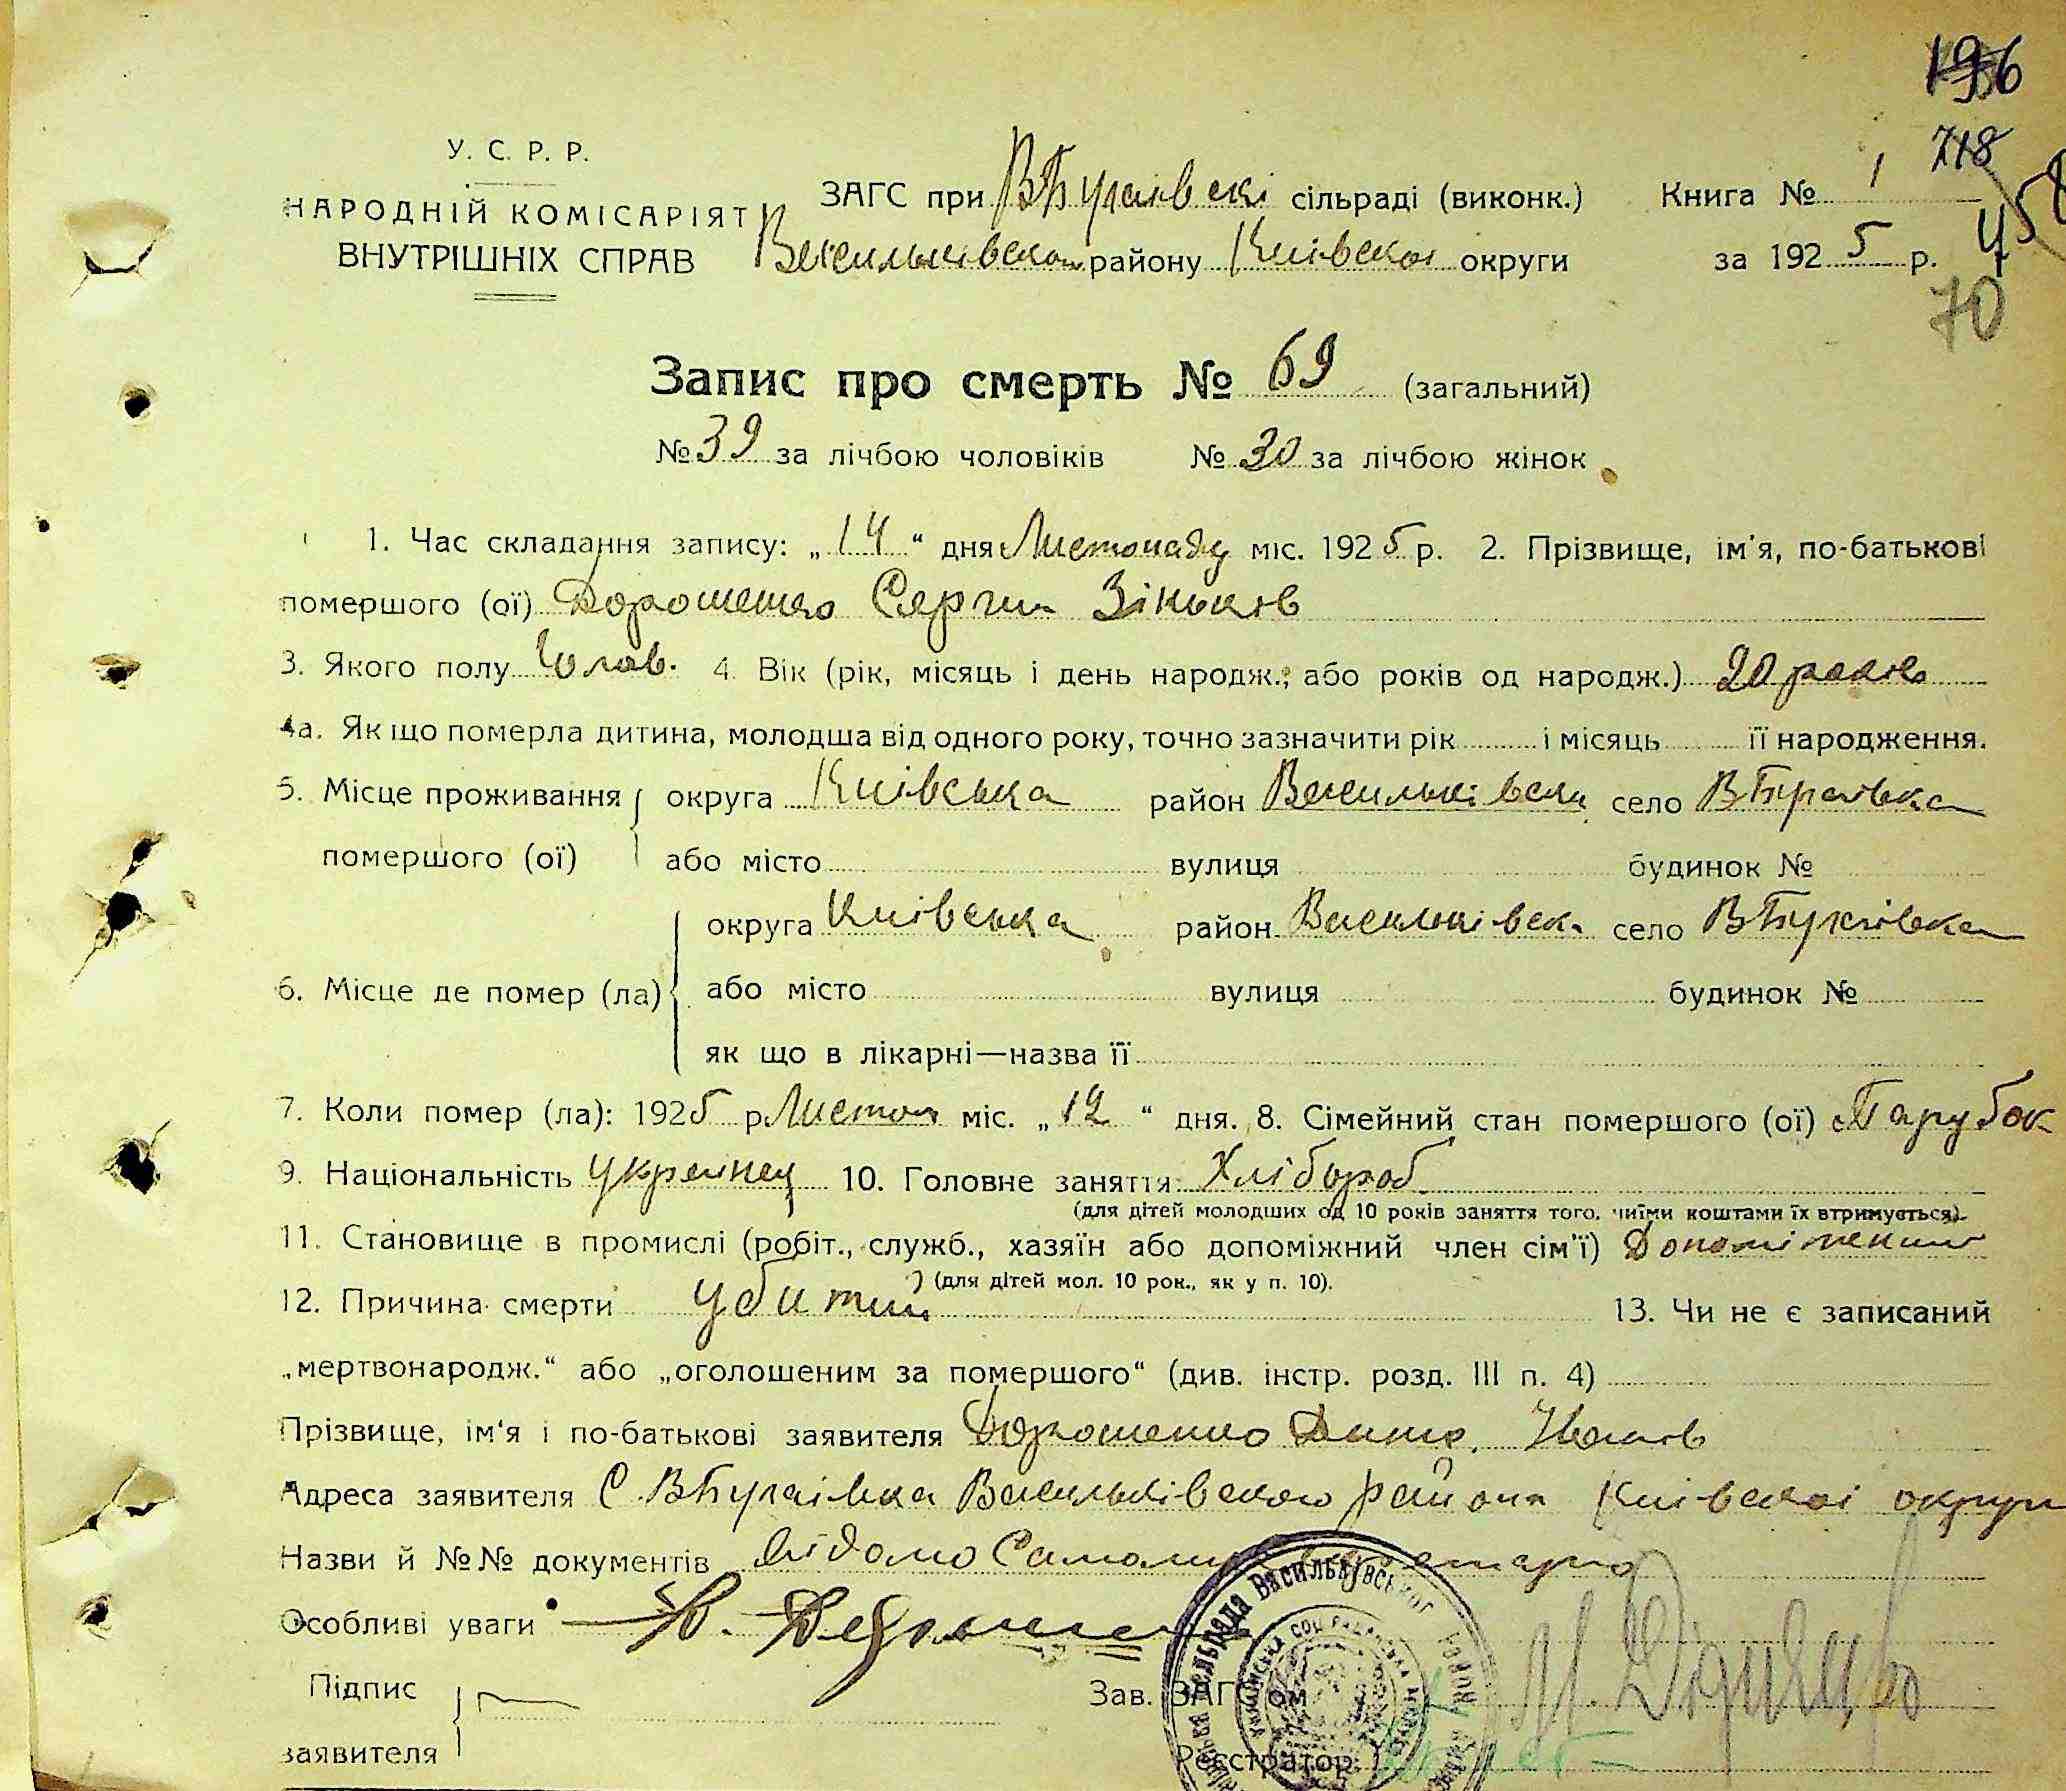 196
У. С. Р. Р.
718
НАРОДНІЙ КОМІСАРІЯТ
ВНУТРІШНІХ СПРАВ
ЗАГС при ВБугаївскі сільраді (виконк.) Книга № 1
458
Васильківском району Київскоі округи за 1925 р.
70
Запис про смерть № 69 (загальний)
№ 39 за лічбою чоловіків № 30 за лічбою жінок
1. Час складання запису: „14“ дня Листопаду міс. 1925 р. 2. Прізвище, ім'я, по-батькові
помершого (ої) Дорошенко Сергий Зіньков
3. Якого полу Чолов. 4. Вік (рік, місяць і день народж.; або років од народж.) 20 років
4а. Як що померла дитина, молодша від одного року, точно зазначити рік і місяць її народження.
5. Місце проживання округа Київська район Васильківськ село ВБугаівка
помершого (ої) або місто вулиця будинок №
округа Київська район Васильківск. село ВБугаівка
6. Місце де помер (ла) або місто вулиця будинок №
як що в лікарні—назва її
7. Коли помер (ла): 1925 р Листоп міс. „12“ дня. 8. Сімейний стан помершого (ої) Парубок
9. Національність Украинец 10. Головне заняття Хлібороб
(для дітей молодших од 10 років заняття того, чиїми коштами їх втримується).
11. Становище в промислі (робіт., служб., хазяїн або допоміжний член сім'ї) Допоміжний
(для дітей мол. 10 рок., як у п. 10).
12. Причина смерти Убитий 13. Чи не є записаний
„мертвонародж.“ або „оголошеним за помершого“ (див. інстр. розд. III п. 4)
Прізвище, ім'я і по-батькові заявителя Дорошенко Иванов
Адреса заявителя С. ВБугаівка Васильківского района Київскоі округи
Назви й №№ документів відомо
Особливі уваги
Підпис
заявителя
Зав. ЗАГС'ом
Реєстратор